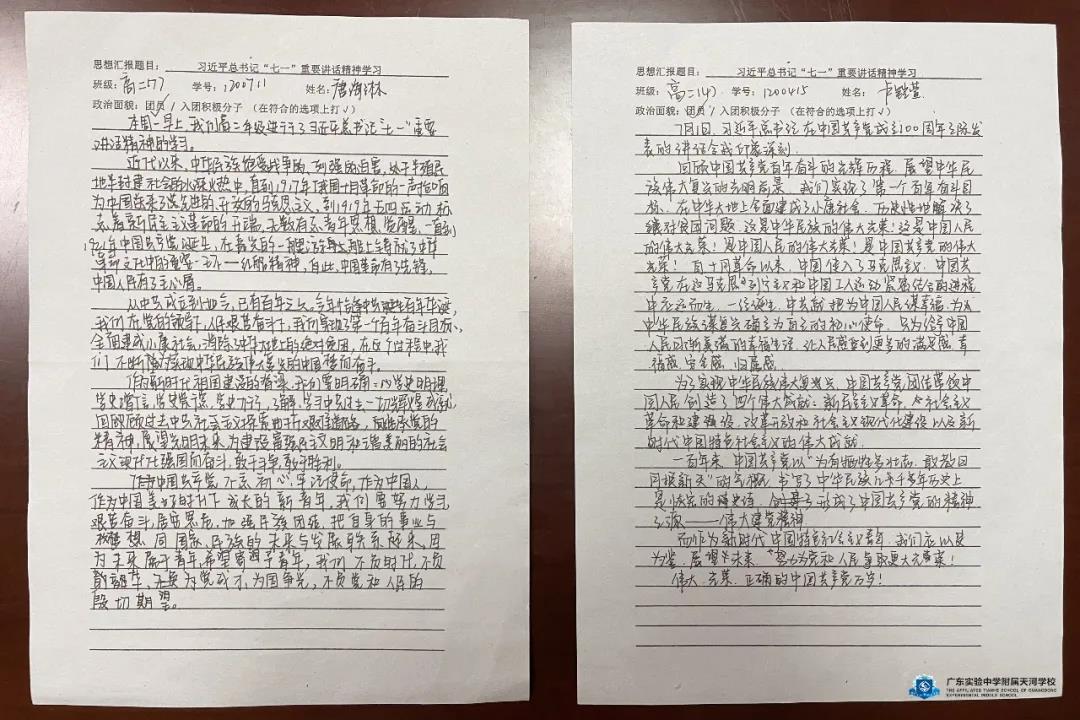 思想汇报题目： 习近平总书记“七一”重要讲话精神学习
班级：高二(7) 学号：1200711 姓名：
政治面貌：团员 / 入团积极分子 （在符合的选项上打 √ ）
本周一早上，我们高二年级进行了习近平总书记“七一”重要
讲话精神的学习。
近代以来，中华民族饱受战争的、列强的迫害，处于半殖民
地半封建社会的水深火热中，直到1917年俄国十月革命的一声炮响
为中国带来了先进的、开放的马克思主义，到1919年五四运动标
志着新民主主义革命的开端，无数有志青年思想觉醒，一直到
1921年中国共产党诞生，在嘉兴的一艘游船上铸就了中华
革命文化中的重要一环——红船精神，自此，中国革命有了先锋，
中国人民有了主心骨。
从中共成立到如今，已有百年之久。今年恰逢中共诞生百年华诞，
我们在党的领导下，人民艰苦奋斗下，我们实现了第一个百年奋斗目标，
全面建成小康社会，消除中华大地上的绝对贫困，在这个过程中我
们不断向实现中华民族伟大复兴的中国梦而奋斗。
作为新时代祖国建设的青年，我们要明确：以学史明理，
学史增信，学史崇德，学史力行，了解、学习中共过去一切
回顾过去中共社会主义探索
精神，展望光明未来，为建设富强民主文明和谐美丽的社会
主义现代化强国而奋斗，敢于斗争，敢于胜利。
中国共产党不忘初心，牢记使命，作为中国人，
作为中国美好时代下成长的新青年，我们要努力学习
艰苦奋斗，居安思危，加强民族团结，把自身的事业与
梦想同国家、民族的未来与发展联系起来，因
为未来属于青年，希望寄予青年，我们不负时代，不负
韶华，无畏为党成才，为国争光，不负党和人民的
殷切期望。
思想汇报题目： 习近平总书记“七一”重要讲话精神学习
班级：高二(4) 学号：1200415 姓名：
政治面貌：团员 / 入团积极分子 （在符合的选项上打 √ ）
7月1日，习近平总书记在中国共产党成立100周年之际发
表的讲话令我印象深刻。
回顾中国共产党百年奋斗的光辉历程，展望中华民
族伟大复兴的光明前景，我们实现了第一个百年奋斗目
标，在中华大地上全面建成了小康社会，历史性地解决了
绝对贫困问题，这是中华民族的伟大光荣！这是中国人民
的伟大光荣！是中国人民的伟大光荣！是中国共产党的伟大
光荣！自十月革命以来，中国传入了马克思主义，中国共
产党在这马克思列宁主义和中国工人运动紧密结合的进程
中应运而生，一经诞生，中共就把为中国人民谋幸福、为
中华民族谋复兴确立为自己的初心使命，只为给予中国
人民日渐美满的幸福生活，让人民感受到更多的满足感、幸
福感、安全感、归属感。
为了实现中华民族伟大复兴，中国共产党团结带领中
国人民创造了四个伟大成就：新民主主义革命、社会主义
革命和建设、改革开放和社会主义现代化建设以及新
时代中国特色社会主义的伟大成就。
一百年来，中国共产党以“为有牺牲多壮志，敢教日
月换新天”的气概，书写了中华民族几千年历史上
最恢宏的史诗，形成了中国共产党的精神
之源——伟大建党精神
而作为新时代中国特色社会主义青年，我们应以史
为鉴，展望未来，努力为党和人民争取更大光荣！
伟大、光荣、正确的中国共产党万岁！
广东实验中学附属天河学校
THE AFFILIATED TIANHE SCHOOL OF GUANGDONG
EXPERIMENTAL MIDDLE SCHOOL